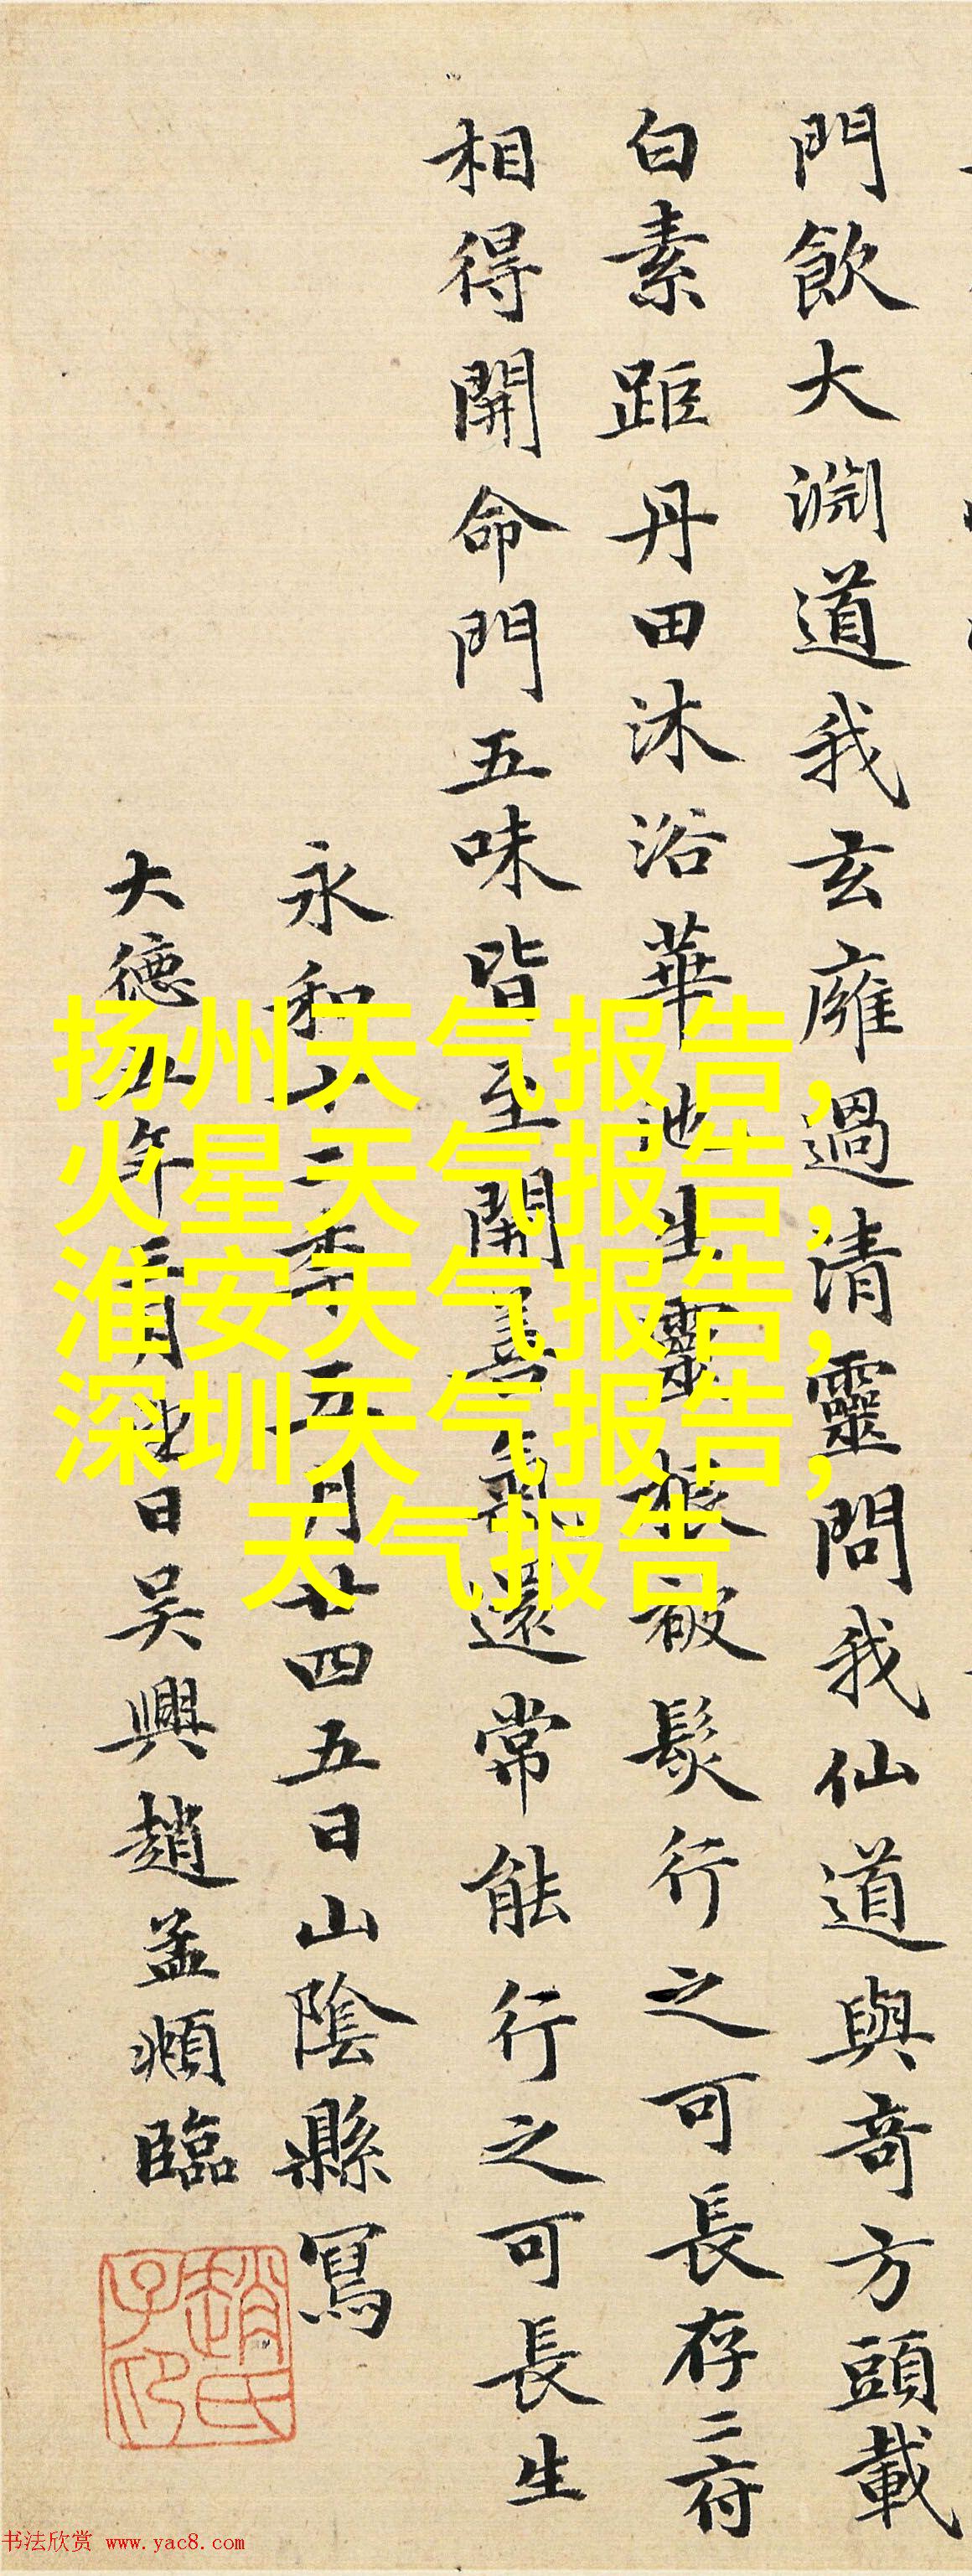 門飲大淵道我玄廱過清靈問我仙道與奇方頭載
白素距丹田沐浴華池生靈根被髮行之可長存二府
相得開命門五味皆至開善氣還常能行之可長生
永和十二年五月廿四五日山陰縣寫
大德五年日吳興趙孟頫臨
趙氏子印
扬州天气报告,
火星天气报告,
淮安天气报告,
深圳天气报告,
天气报告
书法欣赏 www.yac8.com